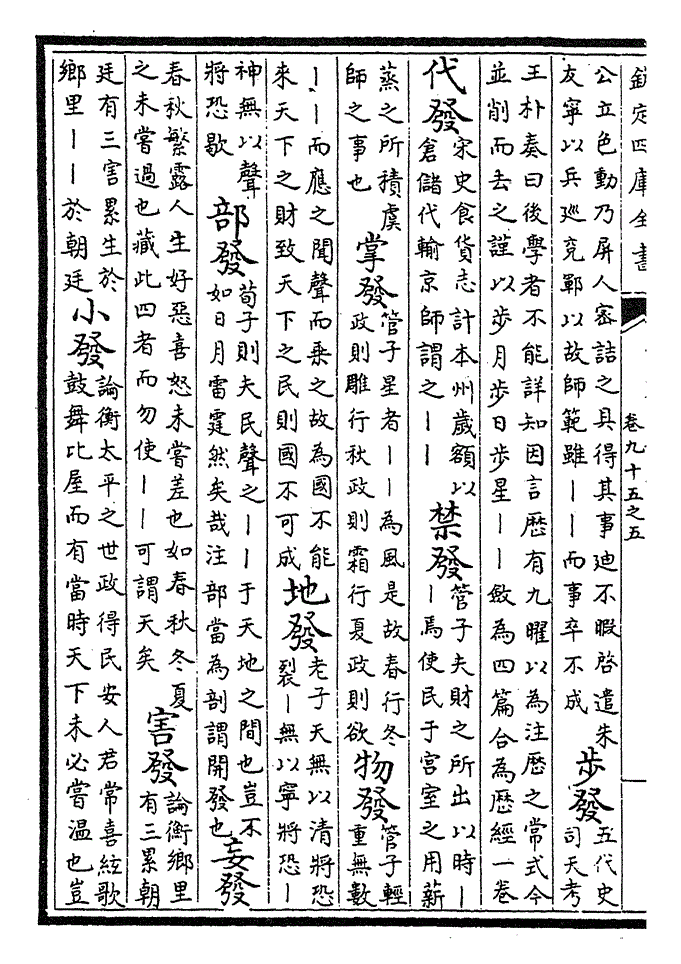 欽定四庫全書
卷九十五之五
公立色動乃屏人密詰之具得其事廸不暇啓遣朱
友寧以兵巡兖鄆以故師範雖——而事卒不成
步發
五代史
司天考
王朴奏曰後學者不能詳知因言歴有九曜以為注歴之常式今
並削而去之謹以步月步日步星——斂為四篇合為歴經一卷
代發
宋史食貨志計本州歲額以
倉儲代輸京師謂之——
禁發
管子夫財之所出以時—
—焉使民于宮室之用薪
蒸之所積虞
師之事也
掌發
管子星者——為風是故春行冬
政則雕行秋政則霜行夏政則欲
物發
管子輕
重無數
——而應之聞聲而乗之故為國不能
來天下之財致天下之民則國不可成
地發
老子天無以清將恐
裂—無以寧將恐—
神無以聲
將恐歇
部發
荀子則夫民聲之——于天地之間也豈不
如日月雷霆然矣哉注部當為剖謂開發也
妄發
春秋繁露人生好惡喜怒未嘗差也如春秋冬夏
之未嘗過也藏此四者而勿使——可謂天矣
害發
論衡鄉里
有三累朝
廷有三害累生於
鄉里——於朝廷
小發
論衡太平之世政得民安人君常喜絃歌
鼓舞比屋而有當時天下未必嘗温也豈